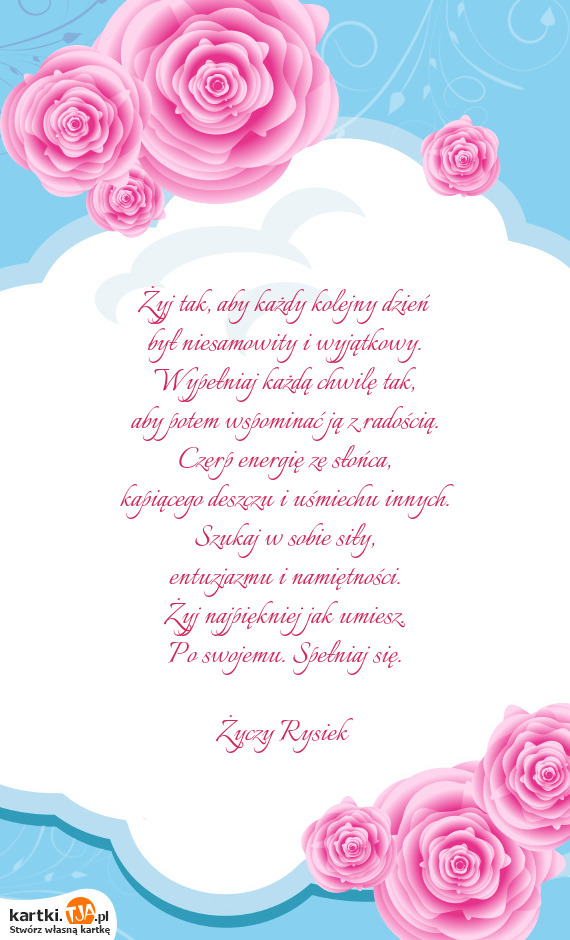 Żyj tak, aby każdy kolejny dzień
był niesamowity i wyjątkowy.
Wypełniaj każdą chwilę tak,
aby potem wspominać ją z radością.
Czerp energię ze słońca,
kapiącego deszczu i uśmiechu innych.
Szukaj w sobie siły,
entuzjazmu i namiętności.
Żyj najpiękniej jak umiesz.
Po swojemu. Spełniaj się.
Życzy Rysiek
kartki.TJA.pl
Stwórz własną kartkę